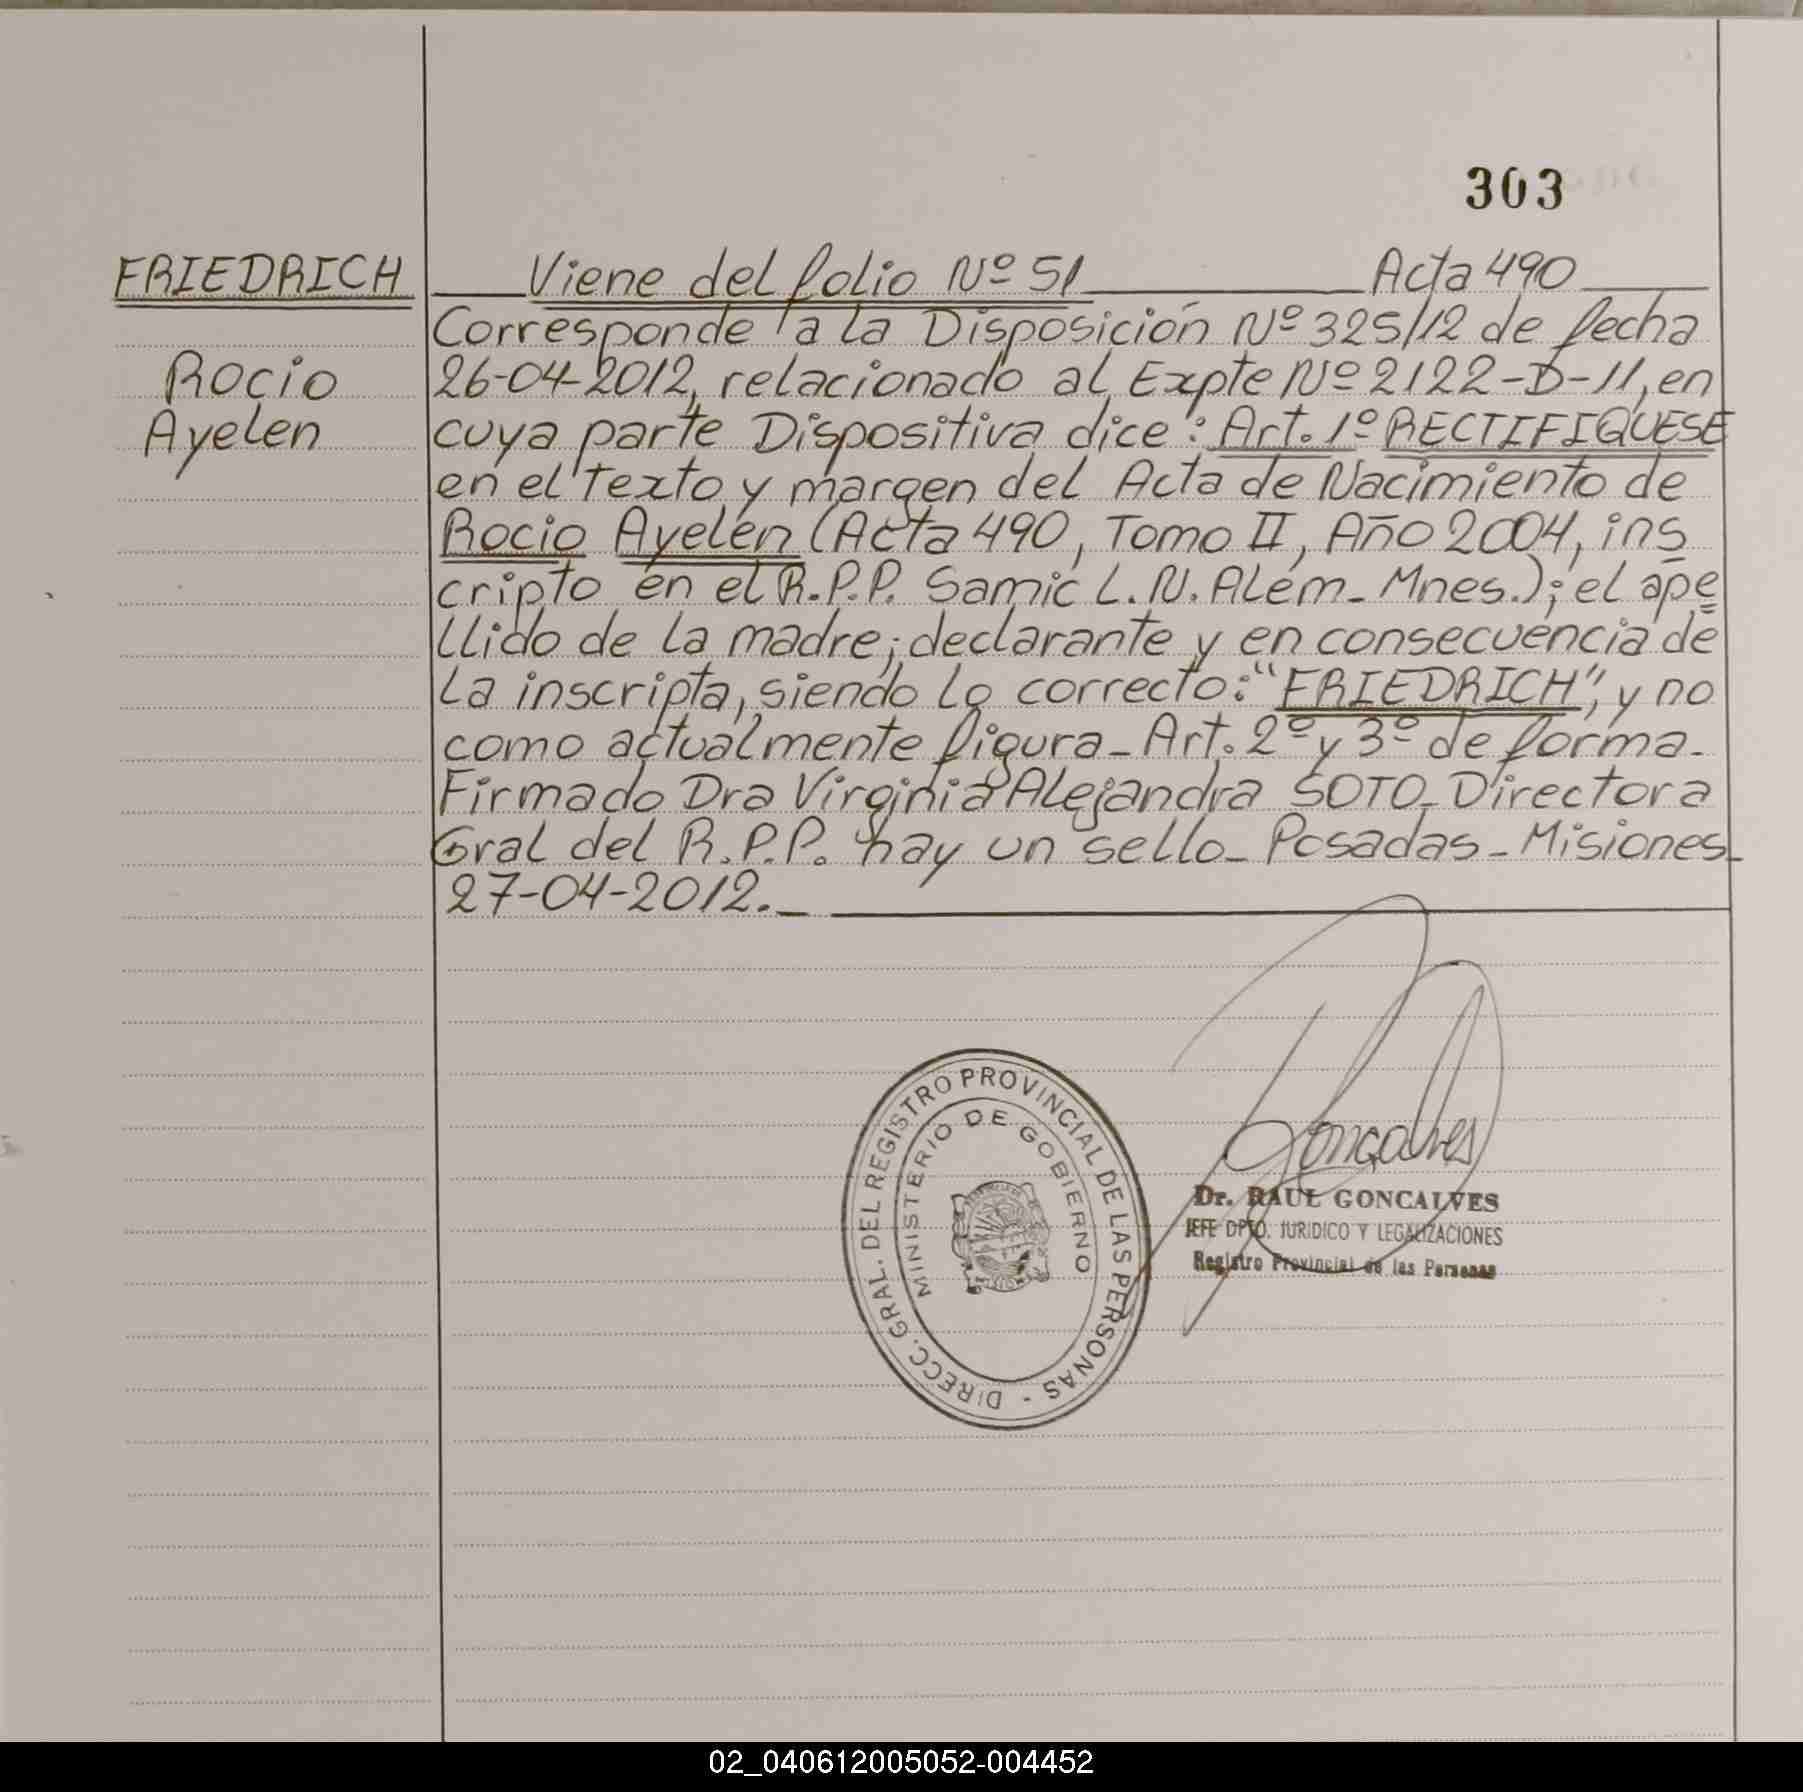 303
FRIEDRICH
Rocio
Ayelen
Viene del folio Nº 51 Acta 490
Corresponde a la Disposición Nº 325/12 de fecha
26-04-2012, relacionado al Expte Nº 2122-D-11, en
cuya parte Dispositiva dice: Art. 1º RECTIFIQUESE
en el texto y margen del Acta de Nacimiento de
Rocio Ayelen (Acta 490, Tomo II, Año 2004, ins
cripto en el R.P.P. Samic L.N. Alem - Mnes.); el ape
llido de la madre; declarante y en consecuencia de
la inscripta, siendo lo correcto: "FRIEDRICH", y no
como actualmente figura - Art. 2º y 3º de forma -
Firmado Dra Virginia Alejandra SOTO - Directora
Gral del R.P.P. hay un sello - Posadas - Misiones -
27-04-2012. -
DIRECC. GRAL. DEL REGISTRO PROVINCIAL DE LAS PERSONAS -
MINISTERIO DE GOBIERNO
Goncalves
Dr. RAUL GONCALVES
JEFE DPTO. JURIDICO Y LEGALIZACIONES
Registro Provincial de las Personas
02_040612005052-004452